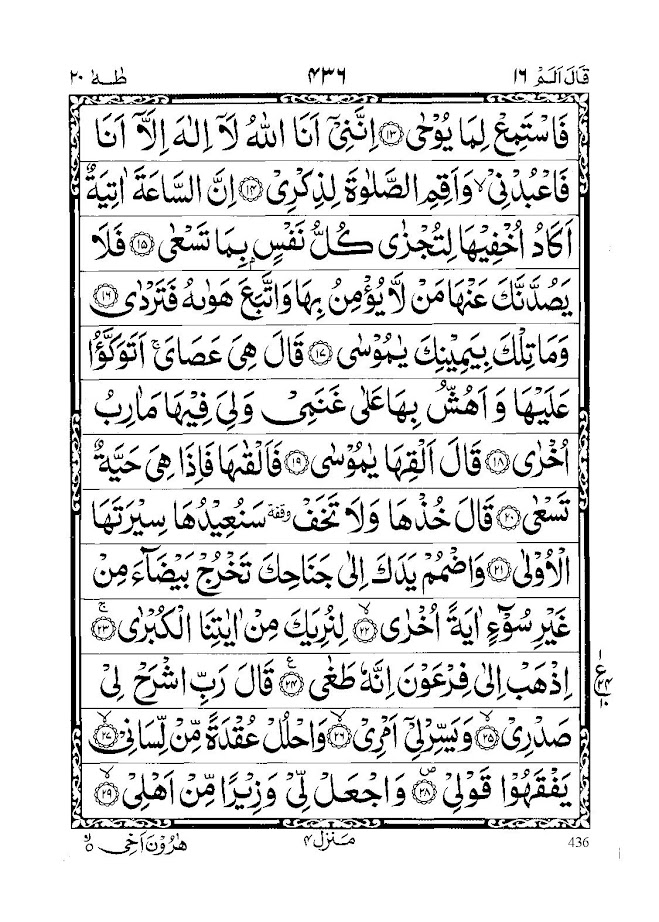 قَالَ اَلَمْ ١٦ ٤٣٦ طٰهٰ ٢٠
فَاسْتَمِعْ لِمَا يُوْحٰى ﴿١٣﴾ اِنَّنِيْۤ اَنَا اللّٰهُ لَاۤ اِلٰهَ اِلَّاۤ اَنَا
فَاعْبُدْنِيْ ۙ وَاَقِمِ الصَّلٰوةَ لِذِكْرِيْ ﴿١٤﴾ اِنَّ السَّاعَةَ اٰتِيَةٌ
اَكَادُ اُخْفِيْهَا لِتُجْزٰى كُلُّ نَفْسٍۭ بِمَا تَسْعٰى ﴿١٥﴾ فَلَا
يَصُدَّنَّكَ عَنْهَا مَنْ لَّا يُؤْمِنُ بِهَا وَاتَّبَعَ هَوٰىهُ فَتَرْدٰى ﴿١٦﴾
وَمَا تِلْكَ بِيَمِيْنِكَ يٰمُوْسٰى ﴿١٧﴾ قَالَ هِيَ عَصَايَ ۚ اَتَوَكَّؤُا
عَلَيْهَا وَ اَهُشُّ بِهَا عَلٰى غَنَمِيْ وَلِيَ فِيْهَا مَاٰرِبُ
اُخْرٰى ﴿١٨﴾ قَالَ اَلْقِهَا يٰمُوْسٰى ﴿١٩﴾ فَاَلْقٰىهَا فَاِذَا هِيَ حَيَّةٌ
تَسْعٰى ﴿٢٠﴾ قَالَ خُذْهَا وَلَا تَخَفْ وقفة سَنُعِيْدُهَا سِيْرَتَهَا
الْاُوْلٰى ﴿٢١﴾ وَاضْمُمْ يَدَكَ اِلٰى جَنَاحِكَ تَخْرُجْ بَيْضَآءَ مِنْ
غَيْرِ سُوْٓءٍ اٰيَةً اُخْرٰى ﴿٢٢﴾ ۙ لِنُرِيَكَ مِنْ اٰيٰتِنَا الْكُبْرٰى ﴿٢٣﴾ ۚ
اِذْهَبْ اِلٰى فِرْعَوْنَ اِنَّهٗ طَغٰى ﴿٢٤﴾ ع قَالَ رَبِّ اشْرَحْ لِيْ
١ ع ٢٤ ١٠
صَدْرِيْ ﴿٢٥﴾ ۙ وَيَسِّرْ لِيْۤ اَمْرِيْ ﴿٢٦﴾ ۙ وَاحْلُلْ عُقْدَةً مِّنْ لِّسَانِيْ ﴿٢٧﴾ ۙ
يَفْقَهُوْا قَوْلِيْ ﴿٢٨﴾ ص وَاجْعَلْ لِّيْ وَزِيْرًا مِّنْ اَهْلِيْ ﴿٢٩﴾ ۙ
436 مَنْزِل ٤ هٰرُوْنَ اَخِى